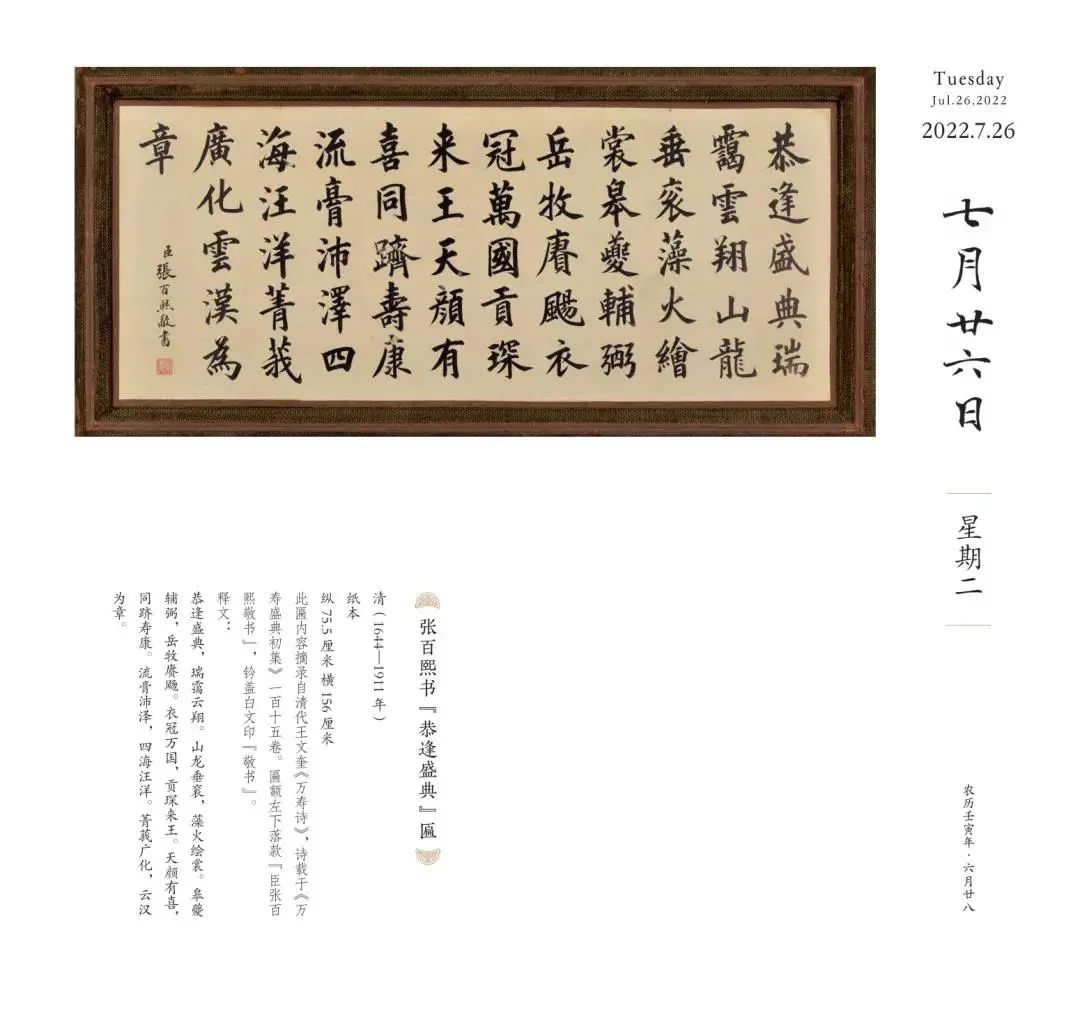 Tuesday
Jul.26,2022
2022.7.26
七月廿六日
星期二
农历壬寅年·六月廿八
恭逢盛典瑞
靄雲翔山龍
垂衮藻火繪
裳皋夔輔弼
岳牧賡颺衣
冠萬國貢琛
来王天顔有
喜同躋壽康
流膏沛澤四
海汪洋菁莪
廣化雲漢為
章
臣張百熙敬書
张百熙书『恭逢盛典』匾
清(1644—1911年)
纸本
纵 75.5 厘米 横 156 厘米
此匾内容摘录自清代王文奎《万寿诗》,诗载于《万
寿盛典初集》一百十五卷。匾额左下落款『臣张百
熙敬书』,钤盖白文印『敬书』。
释文:
恭逢盛典,瑞霭云翔。山龙垂衮,藻火绘裳。皋夔
辅弼,岳牧赓飏。衣冠万国,贡琛来王。天颜有喜,
同跻寿康。流膏沛泽,四海汪洋。菁莪广化,云汉
为章。